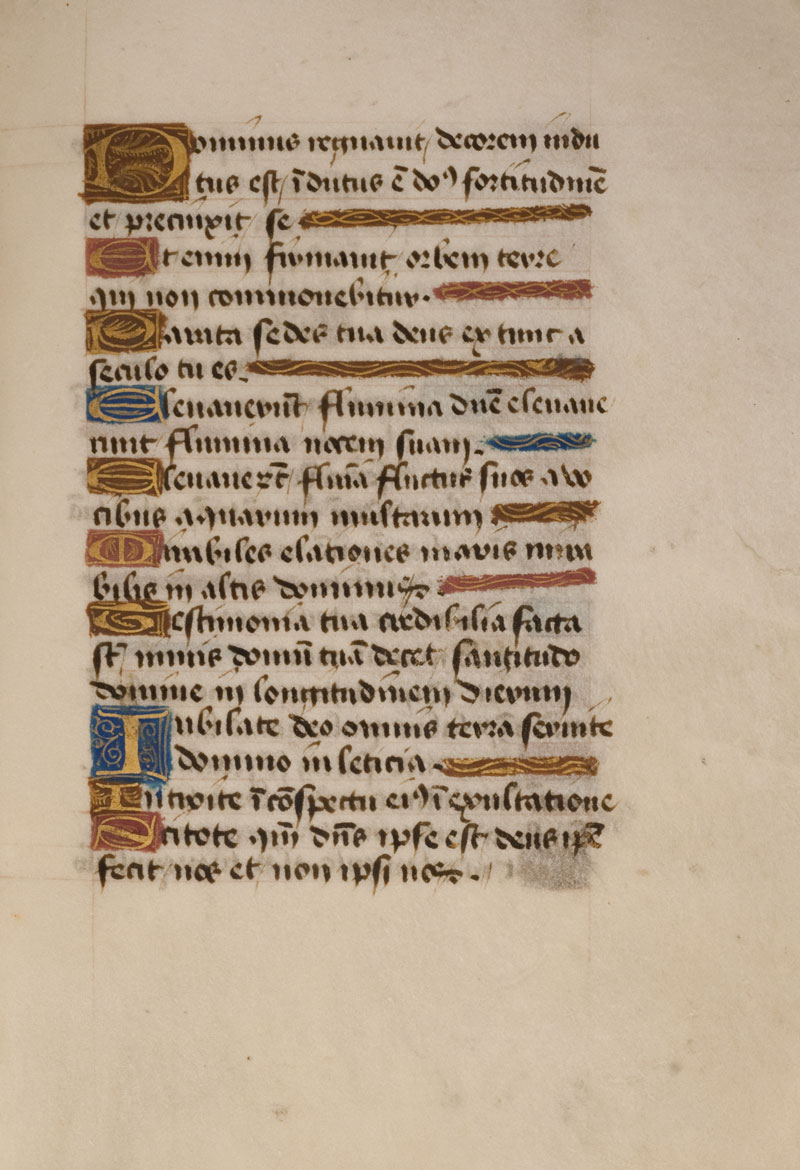 Dominus regnauit/ decorem indu
tus est/ īdutus ē doꝰ fortitudinē
et precinxit se
Etenim firmauit orbem terre
qui non commouebitur.
Parata sedes tua deus ex tunc a
seculo tu es.
Eleuauerūt flumina dn̄e eleuaue
runt flumina vocem suam.
Eleuauerūt flumīa fluctus suos a vo
cibus aquarum multarum
Mirabiles elationes maris mira
bilis in altis dominus.
Testimonia tua credibilia facta
st̄ nimis domū tuā decet santitudo
domine in longitudinem dierum
Iubilate deo omnis terra seruite
domino in leticia
Introite ī cōspectu eiꝰ ī exultatione
Scitote qm̄ dn̄s ipse est deus ip̄e
fecit nos et non ipsi nos.